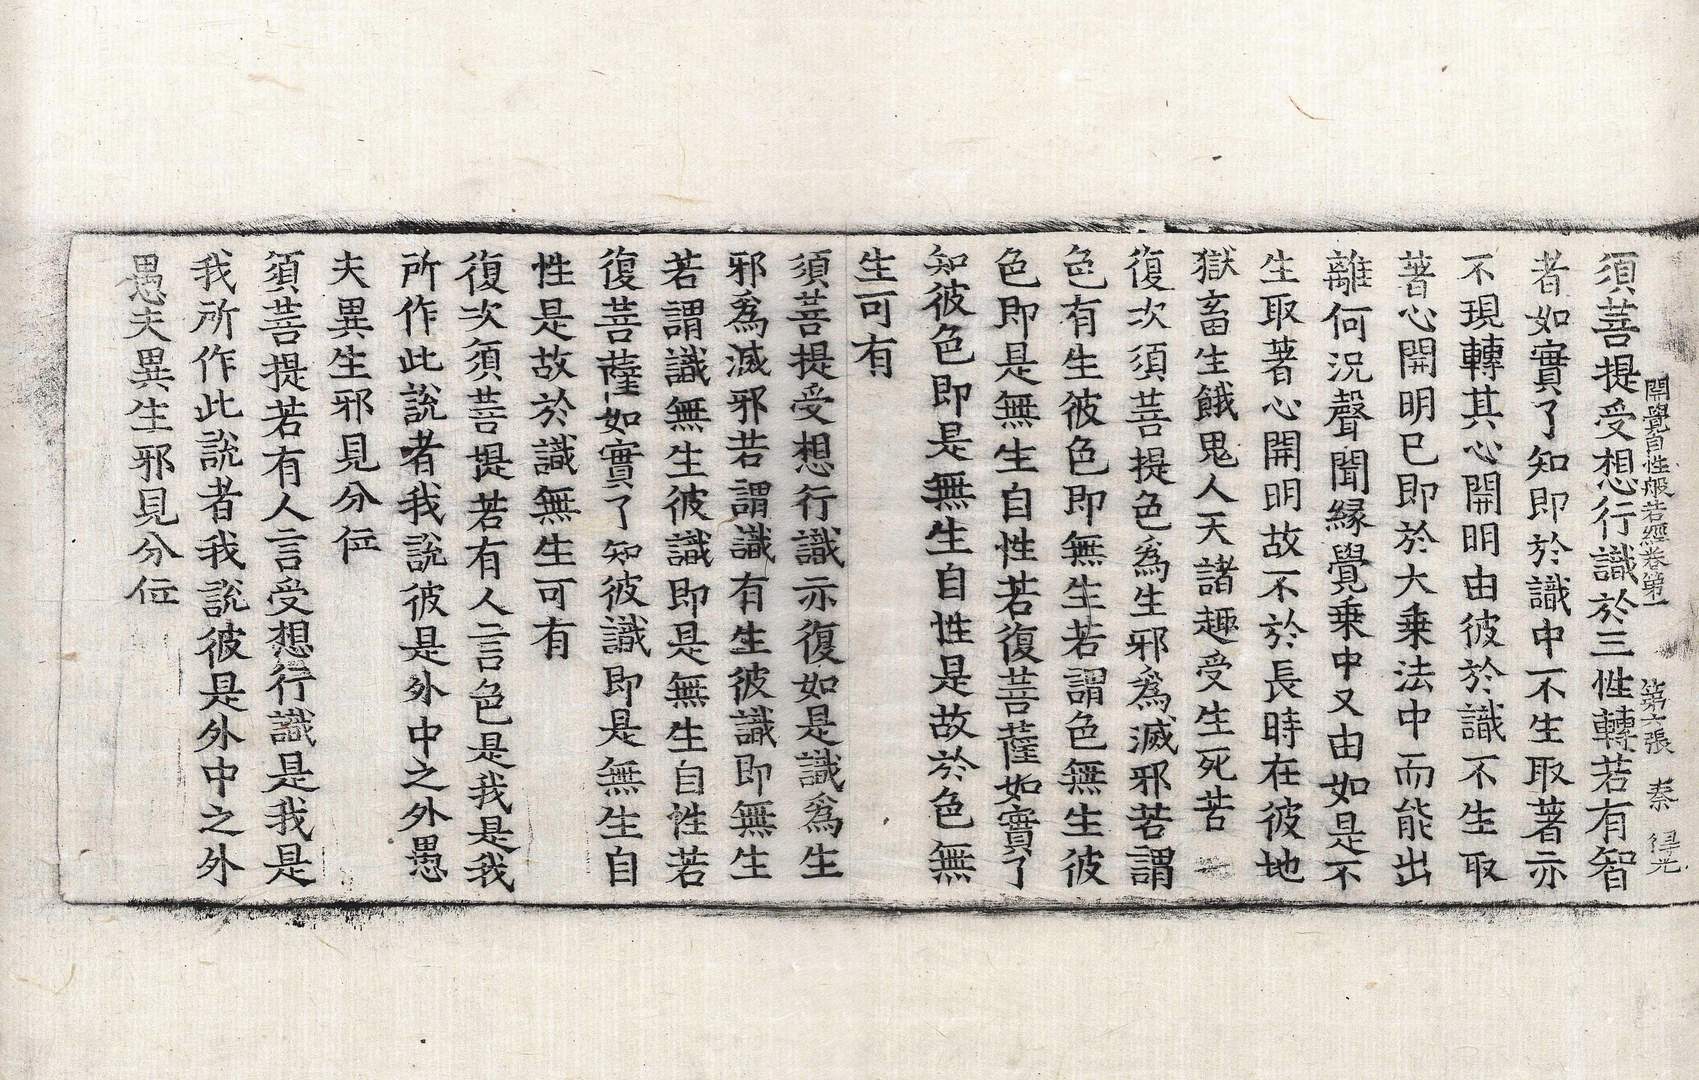 開覺自性般若經卷第一 第六張 秦 得光
須菩提受想行識於三性轉若有智
者如實了知即於識中不生取著亦
不現轉其心開明由彼於識不生取
著心開明已即於大乗法中而能出
離何況聲聞縁覺乗中又由如是不
生取著心開明故不於長時在彼地
獄畜生餓鬼人天諸趣受生死苦
復次須菩提色爲生邪爲滅邪若謂
色有生彼色即無生若謂色無生彼
色即是無生自性若復菩薩如實了
知彼色即是無生自性是故於色無
生可有
須菩提受想行識亦復如是識爲生
邪爲滅邪若謂識有生彼識即無生
若謂識無生彼識即是無生自性若
復菩薩如實了知彼識即是無生自
性是故於識無生可有
復次須菩提若有人言色是我是我
所作此說者我說彼是外中之外愚
夫異生邪見分位
須菩提若有人言受想行識是我是
我所作此說者我說彼是外中之外
愚夫異生邪見分位